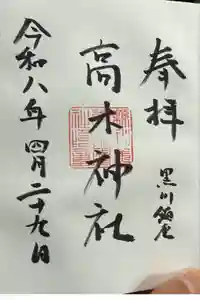 奉拝
黒川鎮座
高木神社
令和八年四月二十九日